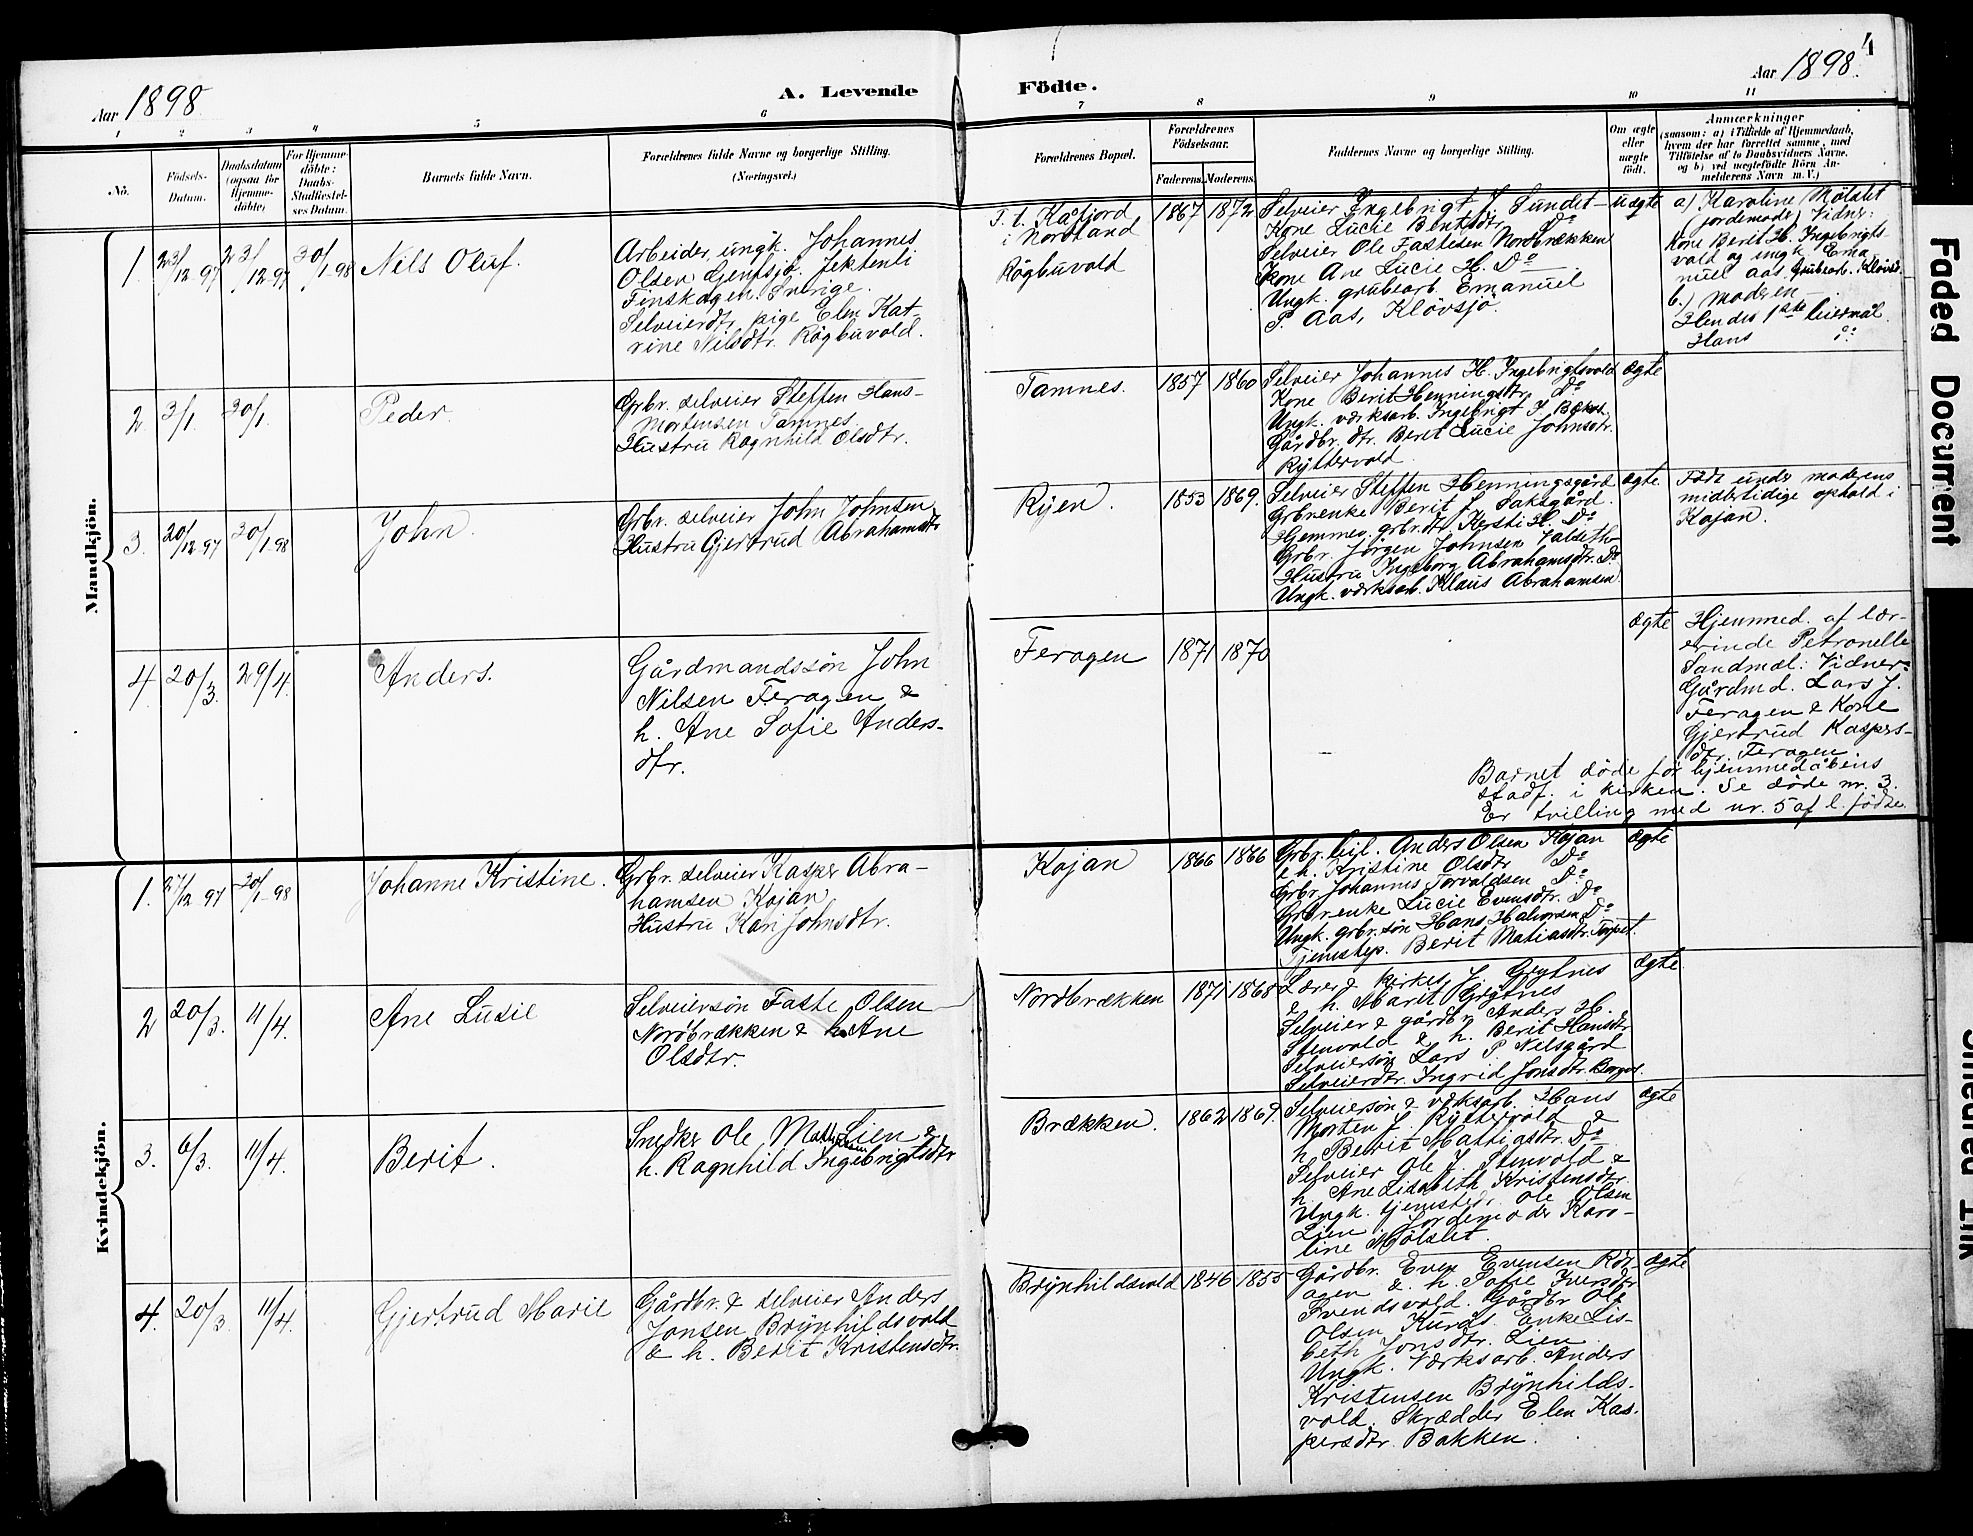 4
Aar 1898
A. Levende
Födte.
Aar 1898.
1 2 3 4 5 6 7 8 9 10 11
No.
Födsels-
Datum.
Daabsdatum
(ogsaa for
Hjemme-
döbte)
For Hjemme-
döbte:
Daabs-
Stadfæstel-
ses Datum.
Barnets fulde Navn.
Forældrenes fulde Navne og borgerlige Stilling.
(Næringsvei.)
Forældrenes Bopæl.
Forældrenes
Födselsaar.
Faderens. Moderens.
Faddernes Navne og borgerlige Stilling.
Om ægte
eller
uægte
födt.
Anmærkninger
(saasom: a) i Tilfælde af Hjemmedaab,
hvem der har forrettet samme, med
Tilföielse af to Daabsvidners Navne,
og b) ved uægtefödte Börn An-
melderens Navn m. V.)
Mandkjön.
1. 23/12 97 23/12 97 30/1-98 Nils Oluf.
Arbeider, ungk. Johannes
Olsen Gjensjö. Jektenli
Finskogen. Sverige.
Selveierdtr, pige Elen Kat-
rine Nilsdtr. Rögbuvold.
F. t. Kåfjord
i Nordland
Rögbuvold
1867 1872
Selveier Ingebrigt J. Sundet
Kone Lucie Bentsdtr. Do
Selveier Ole Fastesen Nordbrækken
Kone Ane Lucie H. Do
Ungk. grubearb. Emanuel
P. Aas, Klövsjö.
uægte
a) Karoline Mölslet
(jordemoder) Vidner:
Kone Berit H. Ingebrigts-
vold og ungk. Ema-
nuel Aas grubearb. Klövsj.
b.) Moderen
Hendes 1ste leiermål.
Hans do
2. 3/1. 30/1. Peder.
Grbr. selveier Steffen Hans-
Mortensen Tamnes.
Hustru Ragnhild Olsdtr.
Tamnes. 1857 1860
Selveier Johannes H. Ingebrigtsvold
Kone Berit Henningsdtr. Do
Ungk. værksarb. Ingebrigt J. Bækost.
Gårdbr. dtr. Berit Lucie Johnsdtr.
Ryttervold
ægte
3. 20/12 97 30/1.98 John.
Grbr. selveier John Johnsen
Hustru Gjertrud Abrahamsdtr
Ryen. 1853 1869.
Selveier Steffen Henningsgård
Grbr.enke Berit L. Saksgård.
Hjemmev. grbr.dtr Kersti H. Do
Grbr. Jörgen Johnsen Valseth
Hustru Ingeborg Abrahamsdtr. Do
Ungk. værksarb. Klaus Abrahamsen
ægte
Född under moderens
midlertidige ophold i
Kojan.
4. 20/3. 29/4. Anders.
Gårdmandssön John
Nilsen Feragen &
h. Ane Sofie Anders-
dtr.
Feragen 1871 1870
ægte
Hjemmed. af lær-
erinde Petronelle
Sandmæl. Vidner:
Gårdmd. Lars J.
Feragen & Kone
Gjertrud Kaspers-
dtr. Feragen.
Barnet döde før hjemmedåbens
stadf. i kirken. Se döde nr. 3.
Er tvilling med nr. 5 af l. fødte.
Kvindekjön.
1. 27/12 97 30/1-98 Johanne Kristine.
Grbr. selveier Kasper Abra-
hamsen Kojan
Hustru Kari Johnsdtr.
Kojan 1866 1866
Grbr. leil. Anders Olsen Kojan
& h. Kristine Olsdtr Do
Grbr. Johannes Torvaldsen Do
Grbr.enke Lucie Evensdtr. Do
Ungk. grbr. sön Hans Halvorsen Do
Tjenestep. Berit Matiasdtr. Torpet.
ægte
2 20/3. 11/4. Ane Lusie
Selveiersön Faste Olsen
Nordbrækken & h. Ane
Olsdtr.
Nordbrækken 1871 1868
Lærer & kirkes. J. Grytnes
& h. Marit Grytnes
Selveier & gårdbr. Anders H.
Stenvold & h. Berit Hansdtr
Selveiersön Lars P. Nilsgård
Selveierdtr. Ingrid Jonsdtr. Borgos.
ægte
3. 6/3. 11/4. Berit.
Snedker Ole M. Lien &
h. Ragnhild Ingebrigtsdtr
Brækken. 1862 1869.
Selveiersön & værksarb. Hans
Morten J. Ryttervold &
h. Berit Mattiasdtr. Do
Selveier Ole J. Stenvold &
h. Ane Lisabeth Kristensdtr.
Ungk. tjenestedr. Ole Olsen
Lien. Jordemoder Karo-
line Mölslet.
ægte
4. 20/3 11/4. Gjertrud Marie
Gårdbr. & selveier Anders
Jonsen Brynhildsvold
& h. Berit Kristensdtr.
Brynhildsvold 1846 1855
Gårdbr. Even Evensen Röt-
agen & h. Sofie Iversdtr
Svendsvold. Gårdbr Ole
Olsen Kurås. Enke Lis-
beth Jonsdtr. Lien.
Ungk. Værksarb. Anders
Kristensen Brynhilds-
vold. Skrædder Elen Kas-
persdtr. Bakken.
ægte
Faded Document
Smeared Ink